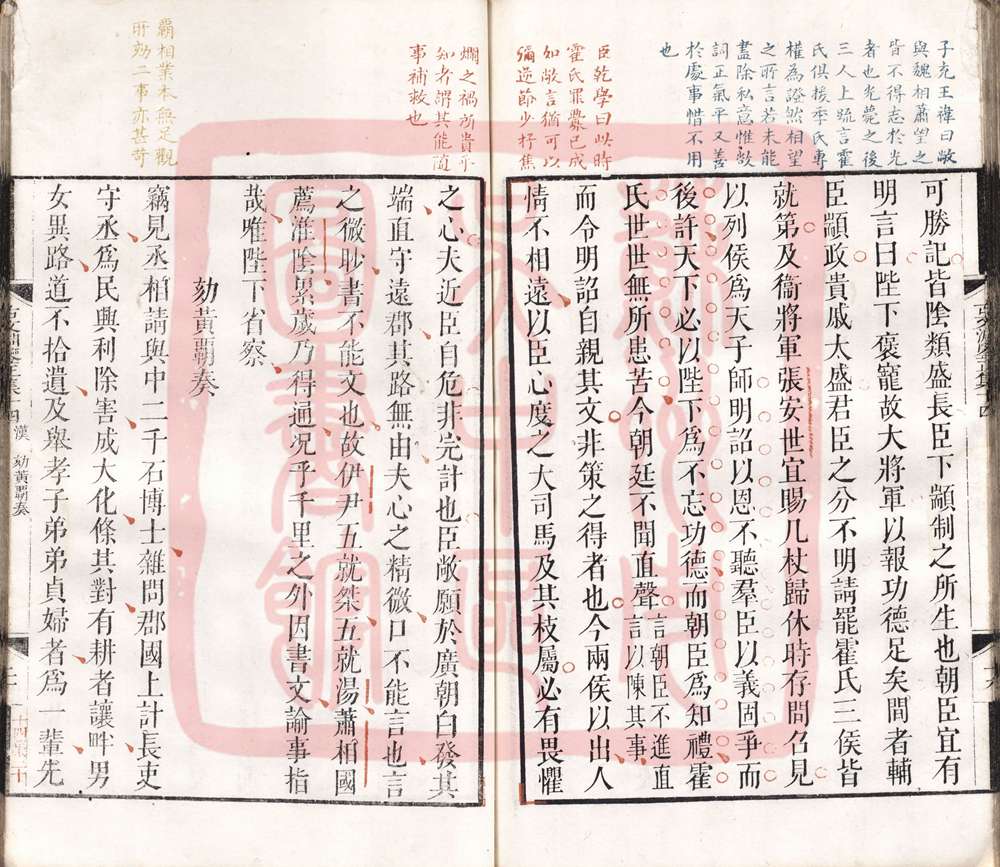 子充王褘曰敞
與魏相蕭望之
皆不得志於光
者也光薨之後
三人上疏言霍
氏俱援季氏專
權為證然相望
之所言若未能
盡除私意惟敞
詞正氣平又善
於處事惜不用
也
臣乾學曰此時
霍氏罪釁已成
如敞言猶可以
彌逆節少杼焦
爛之禍所貴乎
知者謂其能直
事補救也
霸相業本無足觀
所劾二事亦甚奇
可勝記皆陰類盛長臣下顓制之所生也朝臣宜有
明言曰陛下褒寵故大將軍以報功德足矣間者輔
臣顓政貴戚太盛君臣之分不明請罷霍氏三侯皆
就第及衞將軍張安世宜賜几杖歸休時存問召見
以列侯為天子師明詔以恩不聽羣臣以義固爭而
後許天下必以陛下為不忘功德而朝臣為知禮霍
氏世世無所患苦今朝廷不聞直聲言朝臣不進直言以陳其事
而令明詔自親其文非策之得者也今兩侯以出人
情不相遠以臣心度之大司馬及其枝屬必有畏懼
之心夫近臣自危非完計也臣敞願於廣朝白發其
端直守遠郡其路無由夫心之精微口不能言也言
之微眇書不能文也故伊尹五就桀五就湯蕭相國
薦淮陰累歲乃得通況乎千里之外因書文諭事指
哉唯陛下省察
劾黃霸奏
竊見丞相請與中二千石博士雜問郡國上計長吏
守丞為民興利除害成大化條其對有耕者讓畔男
女異路道不拾遺及舉孝子弟弟貞婦者為一輩先
漢 劾黃霸奏